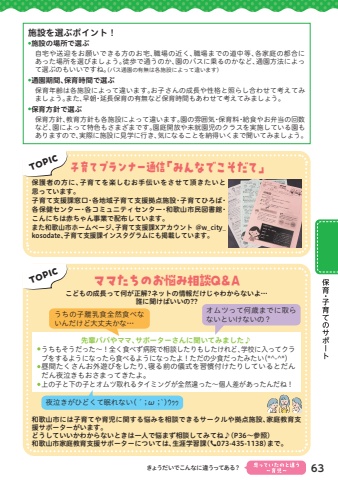 施設を選ぶポイント！
・施設の場所で選ぶ
自宅や送迎をお願いできる方のお宅、職場の近く、職場までの道中等、各家庭の都合に
あった場所を選びましょう。徒歩で通うのか、園のバスに乗るのかなど、通園方法によっ
て選ぶのもいいですね。(バス通園の有無は各施設によって違います)
・通園期間、保育時間で選ぶ
保育年齢は各施設によって違います。お子さんの成長や性格と照らし合わせて考えてみ
ましょう。また、早朝・延長保育の有無など保育時間もあわせて考えてみましょう。
・保育方針で選ぶ
保育方針、教育方針も各施設によって違います。園の雰囲気・保育料・給食やお弁当の回数
など、園によって特色もさまざまです。園庭開放や未就園児のクラスを実施している園も
ありますので、実際に施設に見学に行き、気になることを納得いくまで聞いてみましょう。
TOPIC
子育てプランナー通信「みんなでこそだて」
保護者の方に、子育てを楽しむお手伝いをさせて頂きたいと
思っています。
子育て支援課窓口・各地域子育て支援拠点施設・子育てひろば・
各保健センター・各コミュニティセンター・和歌山市民図書館・
こんにちは赤ちゃん事業で配布しています。
また和歌山市ホームページ、子育て支援課Xアカウント @w_city_
kosodate、子育て支援課インスタグラムにも掲載しています。
TOPIC
ママたちのお悩み相談Q&A
こどもの成長って何が正解？ネットの情報だけじゃわからないよ…
誰に聞けばいいの??
うちの子離乳食全然食べな
いんだけど大丈夫かな…
オムツって何歳までに取ら
ないといけないの？
先輩パパやママ、サポーターさんに聞いてみました♪
●うちもそうだった〜！全く食べず病院で相談したりもしたけれど、学校に入ってクラ
ブをするようになったら食べるようになったよ！ただの少食だったみたい(*^-^*)
●昼間たくさんお外遊びをしたり、寝る前の儀式を習慣付けたりしているとだん
だん夜泣きもおさまってきたよ。
●上の子と下の子とオムツ取れるタイミングが全然違った〜個人差があったんだね！
夜泣きがひどくて眠れない(´；ω；`)ｳｯｯ
和歌山市には子育てや育児に関する悩みを相談できるサークルや拠点施設、家庭教育支
援サポーターがいます。
どうしていいかわからないときは一人で悩まず相談してみてね♪(P36〜参照)
和歌山市家庭教育支援サポーターについては、生涯学習課(📞073-435-1138)まで。
保育・子育てのサポート
きょうだいでこんなに違うってある？
思っていたのと違う
〜育児〜
63